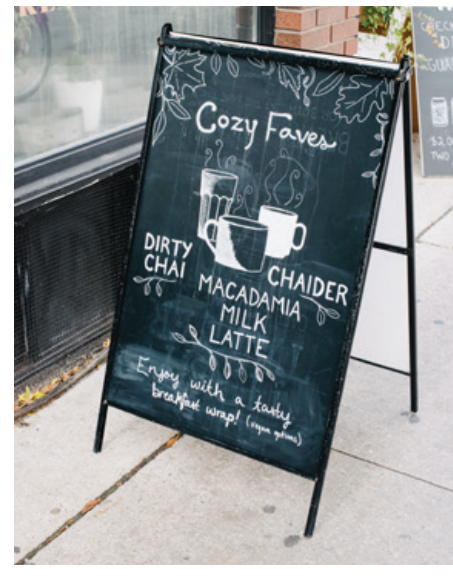 Cozy Faves
DIRTY
CHAI
CHAIDER
MACADAMIA
MILK
LATTE
Enjoy with a tasty
breakfast wrap! (vegan options)
$2.0
TWO